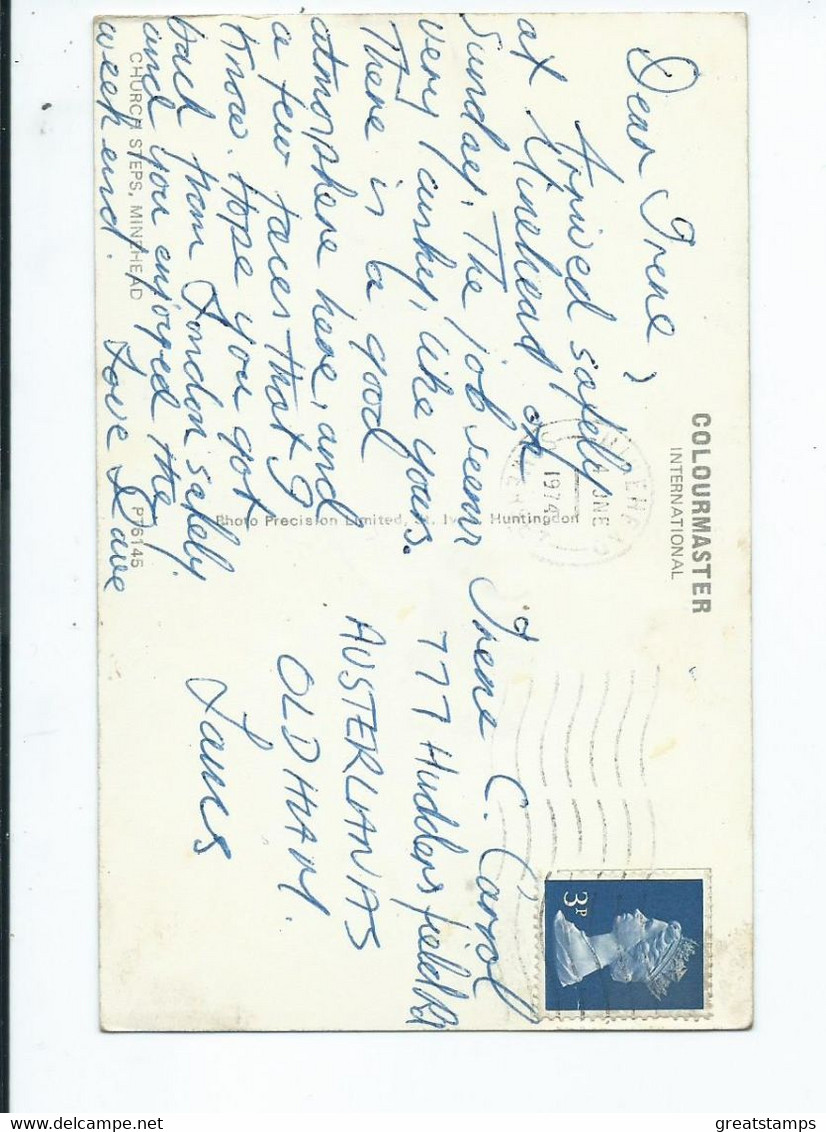 COLOURMASTER
INTERNATIONAL
Dear Irene,
Arrived safely
at Minehead on
Sunday. The job seems
very cushy, like yours.
There is a good
atmosphere here, and
a few faces that I
know. Hope you got
back from London safely
and you enjoyed the
weekend.
Love Dave
CHURCH STEPS, MINEHEAD
PT6145
Photo Precision Limited, St. Ives, Huntingdon
MINEHEAD
JNE
1974
3P
Irene C. Carrol
777 Huddersfield Rd
AUSTERLANDS
OLDHAM.
Lancs
greatstamps